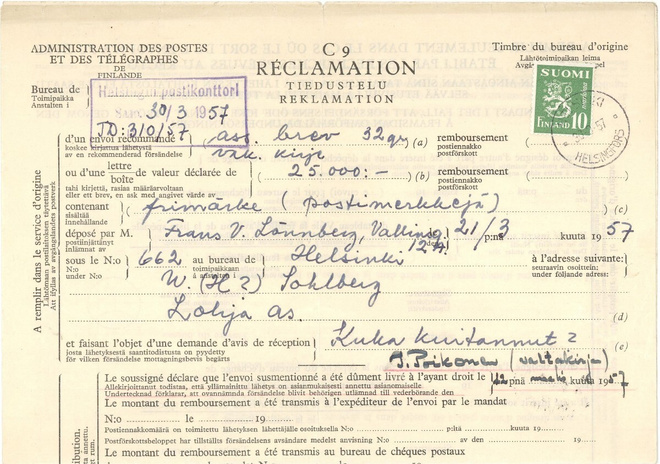 ADMINISTRATION DES POSTES
ET DES TÉLÉGRAPHES
DE
FINLANDE
C 9
RÉCLAMATION
TIEDUSTELU
REKLAMATION
Timbre du bureau d'origine
Lähtötoimipaikan leima
SUOMI
FINLAND 10
HELSINGFORS
Bureau de
Toimipaikka
Anstalten i
Helsingin postikonttori
Saap. 30/3 1957
TD: 310/57
d'un envoi recommandé ass. brev 32 gr (a)
koskee kirjattua lähetystä
av en rekommenderad försändelse
vak. kirje
remboursement
postiennakko
postförskott
ou d'une lettre de valeur déclarée de 25.000:- (b)
boîte
tahi kirjettä, rasiaa määräarvoltaan
eller ett brev, en ask med angivet värde av
remboursement
postiennakko
postförskott
contenant frimärke (postimerkkejä) (c)
sisältää
innehållande
déposé par M. Frans V. Lönnberg, Valling. 21/3 p:nä kuuta 1957
postiinjättänyt
inlämnat av
12 A.
sous le N:o 662 au bureau de Helsinki à l'adresse suivante:
lähet. N:o
under N:o
toimipaikkaan
å anstalten i
seuraavin osoittein:
under följande adress:
W. (H?) Sohlberg
Lohja as. (d)
et faisant l'objet d'une demande d'avis de réception Kuka kuitannut? (e)
josta lähetyksestä saantitodistusta on pyydetty
för vilken försändelse mottagningsbevis begärts
J. Poikonen (valtakirja)
A remplir dans le service d'origine
Lähtömaan postilaitoksen täytettävä
Att ifyllas av avgångslandets postverk
Le soussigné déclare que l'envoi susmentionné a été dûment livré à l'ayant droit le 22 pnä kuuta 1957
Allekirjoittanut todistaa, että yllämainittu lähetys on asianmukaisesti annettu asianomaiselle
Undertecknad förklarar, att ovannämnda försändelse blivit behörigen utlämnad till vederbörande den
Le montant du remboursement a été transmis à l'expéditeur de l'envoi par le mandat
N:o le 19
Postiennakkomäärä on lähetetty lähetyksen lähettäjälle osoituksella N:o p:ltä kuuta 19
Postförskottsbeloppet har tillställts försändelsens avsändare medelst anvisning N:o av den 19
Le montant du remboursement a été transmis au bureau de chèques postaux